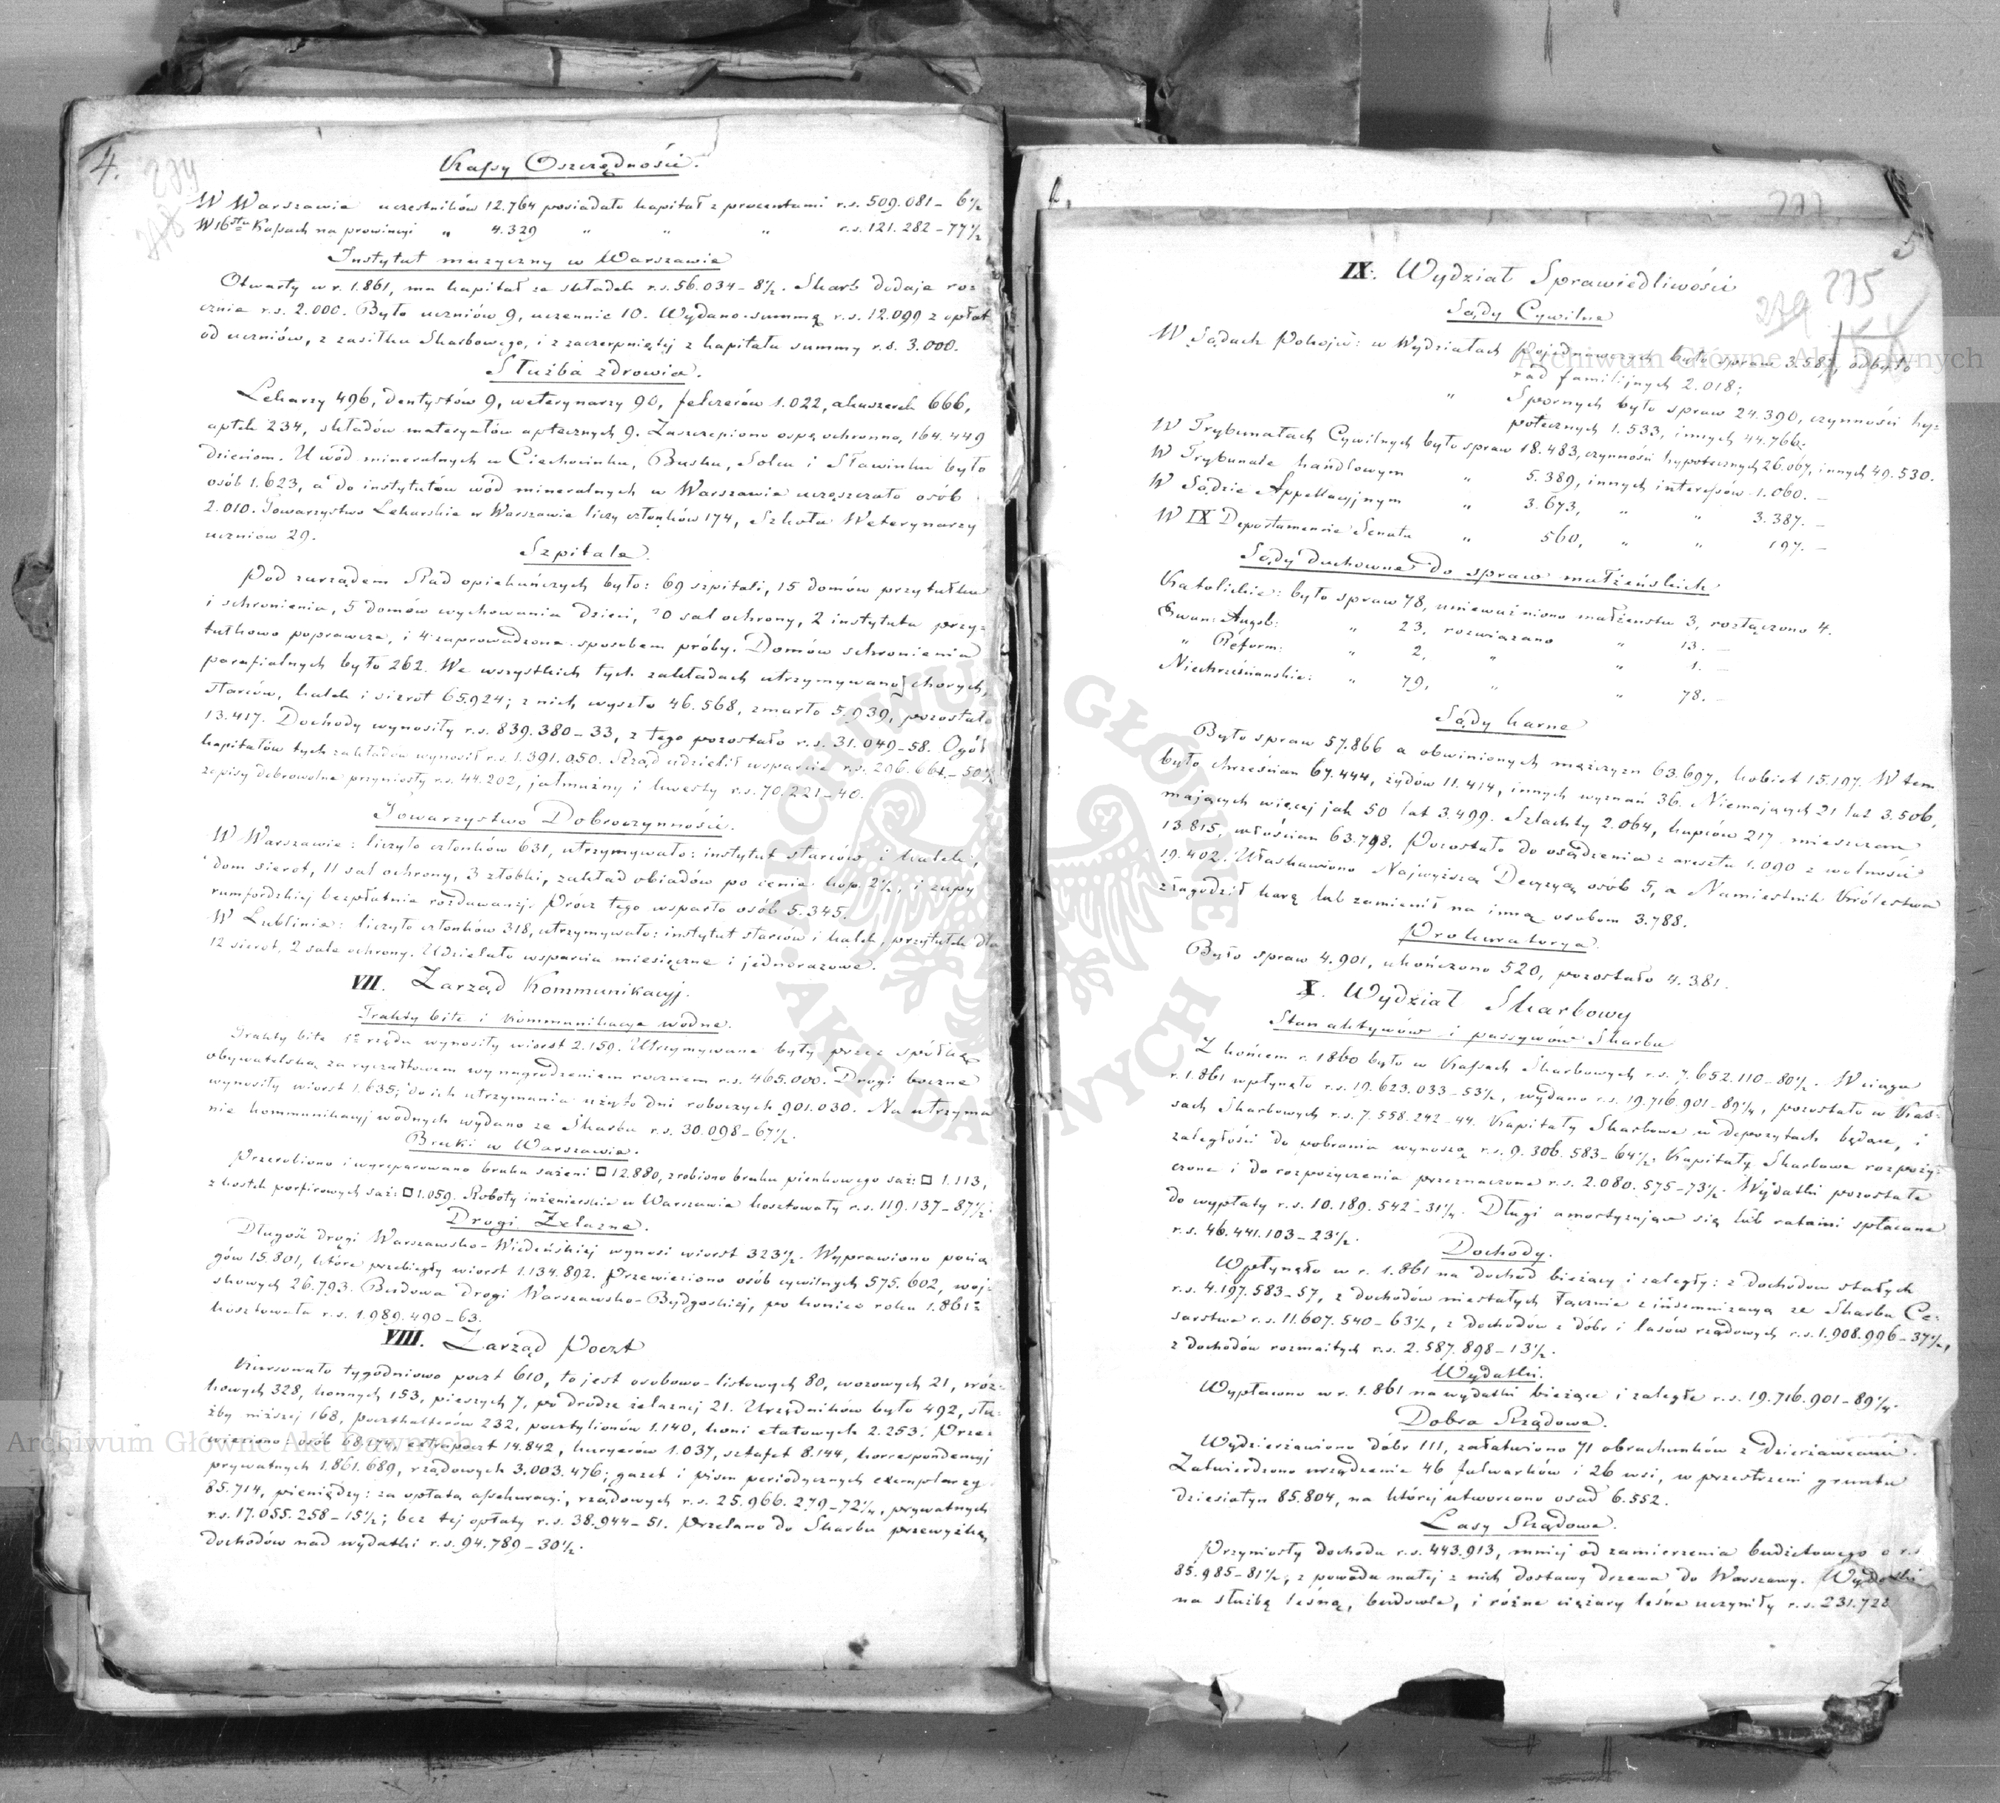 4.
274
278
Kassy Oszczędności.
W Warszawie uczestników 12.764 posiadało kapitał z procentami r.s. 509.081 – 6½
W 16stu Kassach na prowincyi „ 4.329 „ „ „ r.s. 121.282 – 77½
Instytut muzyczny w Warszawie
Otwarty w r. 1.861, ma kapitał ze składek r.s. 56.034 – 8½. Skarb dodaje ro=
cznie r.s. 2.000. Było uczniów 9, uczennic 10. Wydano summę r.s. 12.099 z opłat
od uczniów, z zasiłku Skarbowego, i z zaczerpniętej z kapitału summy r.s. 3.000.
Służba zdrowia.
Lekarzy 496, dentystów 9, weterynarzy 90, felczerów 1.022, akuszerek 666,
aptek 234, składów materyałów aptecznych 9. Zaszczepiono ospę ochronną, 164.449
dzieciom. U wód mineralnych w Ciechocinku, Busku, Solcu i Sławinku było
osób 1.623, a do instytutów wód mineralnych w Warszawie uczęszczało osób
2.010. Towarzystwo Lekarskie w Warszawie liczy członków 174, Szkoła Weterynarzy
uczniów 29.
Szpitale.
Pod zarządem Rad opiekuńczych było: 69 szpitali, 15 domów przytułku
i schronienia, 5 domów wychowania dzieci, 20 sal ochrony, 2 instytuta przy=
tułkowo poprawcze, i 4 zaprowadzone sposobem próby. Domów schronienia
parafialnych było 262. We wszystkich tych zakładach utrzymywano chorych,
starców, kalek i sierot 65.924; z nich wyszło 46.568, zmarło 5.939, pozostało
13.417. Dochody wynosiły r.s. 839.380 – 33, z tego pozostało r.s. 31.049 – 58. Ogół
kapitałów tych zakładów wynosił r.s. 1.391.050. Rząd udzielił wsparcie r.s. 206.661 – 50½
zapisy dobrowolne przyniosły r.s. 44.202, jałmużny i kwesty r.s. 70.221 – 40.
Towarzystwo Dobroczynności.
W Warszawie: liczyło członków 631, utrzymywało: instytut starców i kalek,
dom sierot, 11 sal ochrony, 3 żłobki, zakład obiadów po cenie kop. 2½, i zupy
rumfordzkiej bezpłatnie rozdawanej. Prócz tego wsparło osób 5.345.
W Lublinie: liczyło członków 318, utrzymywało: instytut starców i kalek, przytułek dla
12 sierot, 2 sale ochrony. Udzielało wsparcia miesięczne i jednorazowe.
VII. Zarząd Kommunikacyj.
Trakty bite i Kommunikacye wodne.
Trakty bite 1go rzędu wynosiły wiorst 2.159. Utrzymywane były przez spółkę
obywatelską za ryczałtowem wynagrodzeniem rocznem r.s. 465.000. Drogi boczne
wynosiły wiorst 1.635; do ich utrzymania użyto dni roboczych 901.030. Na utrzyma
nie kommunikacyj wodnych wydano ze Skarbu r.s. 30.098 – 67½.
Bruki w Warszawie.
Przerobiono i wyreparowano bruku sażeni □ 12.880, zrobiono bruku pieńkowego saż: □ 1.113,
z kostek porfirowych saż: □ 1.059. Roboty inżenierskie w Warszawie kosztowały r.s. 119.137 – 87½.
Drogi Żelazne.
Długość drogi Warszawsko-Wiedeńskiej wynosi wiorst 323½. Wyprawiono pocią
gów 15.801, które przebiegły wiorst 1.134.892. Przewieziono osób cywilnych 575.602, woj=
skowych 26.793. Budowa drogi Warszawsko-Bydgoskiej, po koniec roku 1.861
kosztowała r.s. 1.989.490 – 63.
VIII. Zarząd Poczt
Kursowało tygodniowo poczt 610, to jest osobowo-listowych 80, wozowych 21, wóz=
kowych 328, konnych 153, pieszych 7, po drodze żelaznej 21. Urzędników było 492, słu=
żby niższej 168, poczthalterów 232, pocztylionów 1.140, koni etatowych 2.253. Prze=
wieziono: osób 68.174, extrapoczt 14.842, kuryerów 1.037, sztafet 8.144, korrespondencyj
prywatnych 1.861.689, rządowych 3.003.476; gazet i pism periodycznych exemplarzy
85.714, pieniędzy: za opłatą assekuracyi, rządowych r.s. 25.966.279 – 72¼, prywatnych
r.s. 17.055.258 – 15½; bez tej opłaty r.s. 38.944 – 51. Przelano do Skarbu przewyżkę
dochodów nad wydatki r.s. 94.789 – 30½.
277
5
275
279
IX. Wydział Sprawiedliwości
Sądy Cywilne
W Sądach Pokoju: w Wydziałach Pojednawczych było spraw 3.587, odbyto
rad familijnych 2.018;
„ Spornych było spraw 24.390, czynności hy=
potecznych 1.533, innych 44.766;
W Trybunałach Cywilnych było spraw 18.483, czynności hypotecznych 26.067, innych 49.530.
W Trybunale handlowym „ 5.389, innych interessów 1.060. –
W Sądzie Appellacyjnym „ 3.673, „ „ 3.387. –
W IX Departamencie Senatu „ 560, „ „ 197. –
Sądy duchowne do spraw małżeńskich
Katolickie: było spraw 78, unieważniono małżeństw 3, rozłączono 4.
Ewan: Augsb: „ 23, rozwiązano „ 13. –
„ Reform: „ 2, „ „ 1. –
Niechrześciańskie: „ 79, „ „ 78. –
Sądy karne
Było spraw 57.866 a obwinionych mężczyzn 63.697, kobiet 15.197. W tem
było chrześcian 67.444, żydów 11.414, innych wyznań 36. Niemających 21 lat 3.506,
mających więcej jak 50 lat 3.499. Szlachty 2.064, kupców 217, mieszczan
13.815, włościan 63.798. Pozostało do osądzenia z aresztu 1.090 z wolności
19.402. Ułaskawiono Najwyższą Decyzyą osób 5, a Namiestnik Królestwa
złagodził karę lub zamienił na inną osobom 3.788.
Prokuratorya.
Było spraw 4.901, ukończono 520, pozostało 4.381.
X. Wydział Skarbowy
Stan aktywów i passywów Skarbu
Z końcem r. 1860 było w Kassach Skarbowych r.s. 7.652.110 – 80½. W ciągu
r. 1.861 wpłynęło r.s. 19.623.033 – 53½, wydano r.s. 19.716.901 – 89¼, pozostało w Kas=
sach Skarbowych r.s. 7.558.242 – 44. Kapitały Skarbowe w depozytach będące, i
zaległości do pobrania wynoszą r.s. 9.306.583 – 64½. Kapitały Skarbowe rozpoży=
czone i do rozpożyczenia przeznaczone r.s. 2.080.575 – 73½. Wydatki pozostałe
do wypłaty r.s. 10.189.542 – 31¼. Długi amortyzujące się lub ratami spłacane
r.s. 46.441.103 – 23½.
Dochody.
Wpłynęło w r. 1.861 na dochód bieżący i zaległy: z dochodów stałych
r.s. 4.197.583 – 57, z dochodów niestałych łącznie z indemnizacyą ze Skarbu Ce=
sarstwa r.s. 11.607.540 – 63½, z dochodów z dóbr i lasów rządowych r.s. 1.908.996 – 37½,
z dochodów rozmaitych r.s. 2.587.898 – 13½.
Wydatki.
Wypłacono w r. 1.861 na wydatki bieżące i zaległe r.s. 19.716.901 – 89¼.
Dobra Rządowe.
Wydzierżawiono dóbr 111, załatwiono 71 obrachunków z dzierżawcami.
Zatwierdzono urządzenie 46 folwarków i 26 wsi, w przestrzeni gruntu
dziesiatyn 85.804, na której utworzono osad 6.552.
Lasy Rządowe.
Przyniosły dochodu r.s. 443.913, mniej od zamierzenia budżetowego o r.s.
85.985 – 81½, z powodu małej z nich dostawy drzewa do Warszawy. Wydatki
na służbę leśną, budowle, i różne ciężary leśne uczyniły r.s. 231.728
Archiwum Główne Akt Dawnych
Archiwum Główne Akt Dawnych
ARCHIWUM GŁÓWNE AKT DAWNYCH